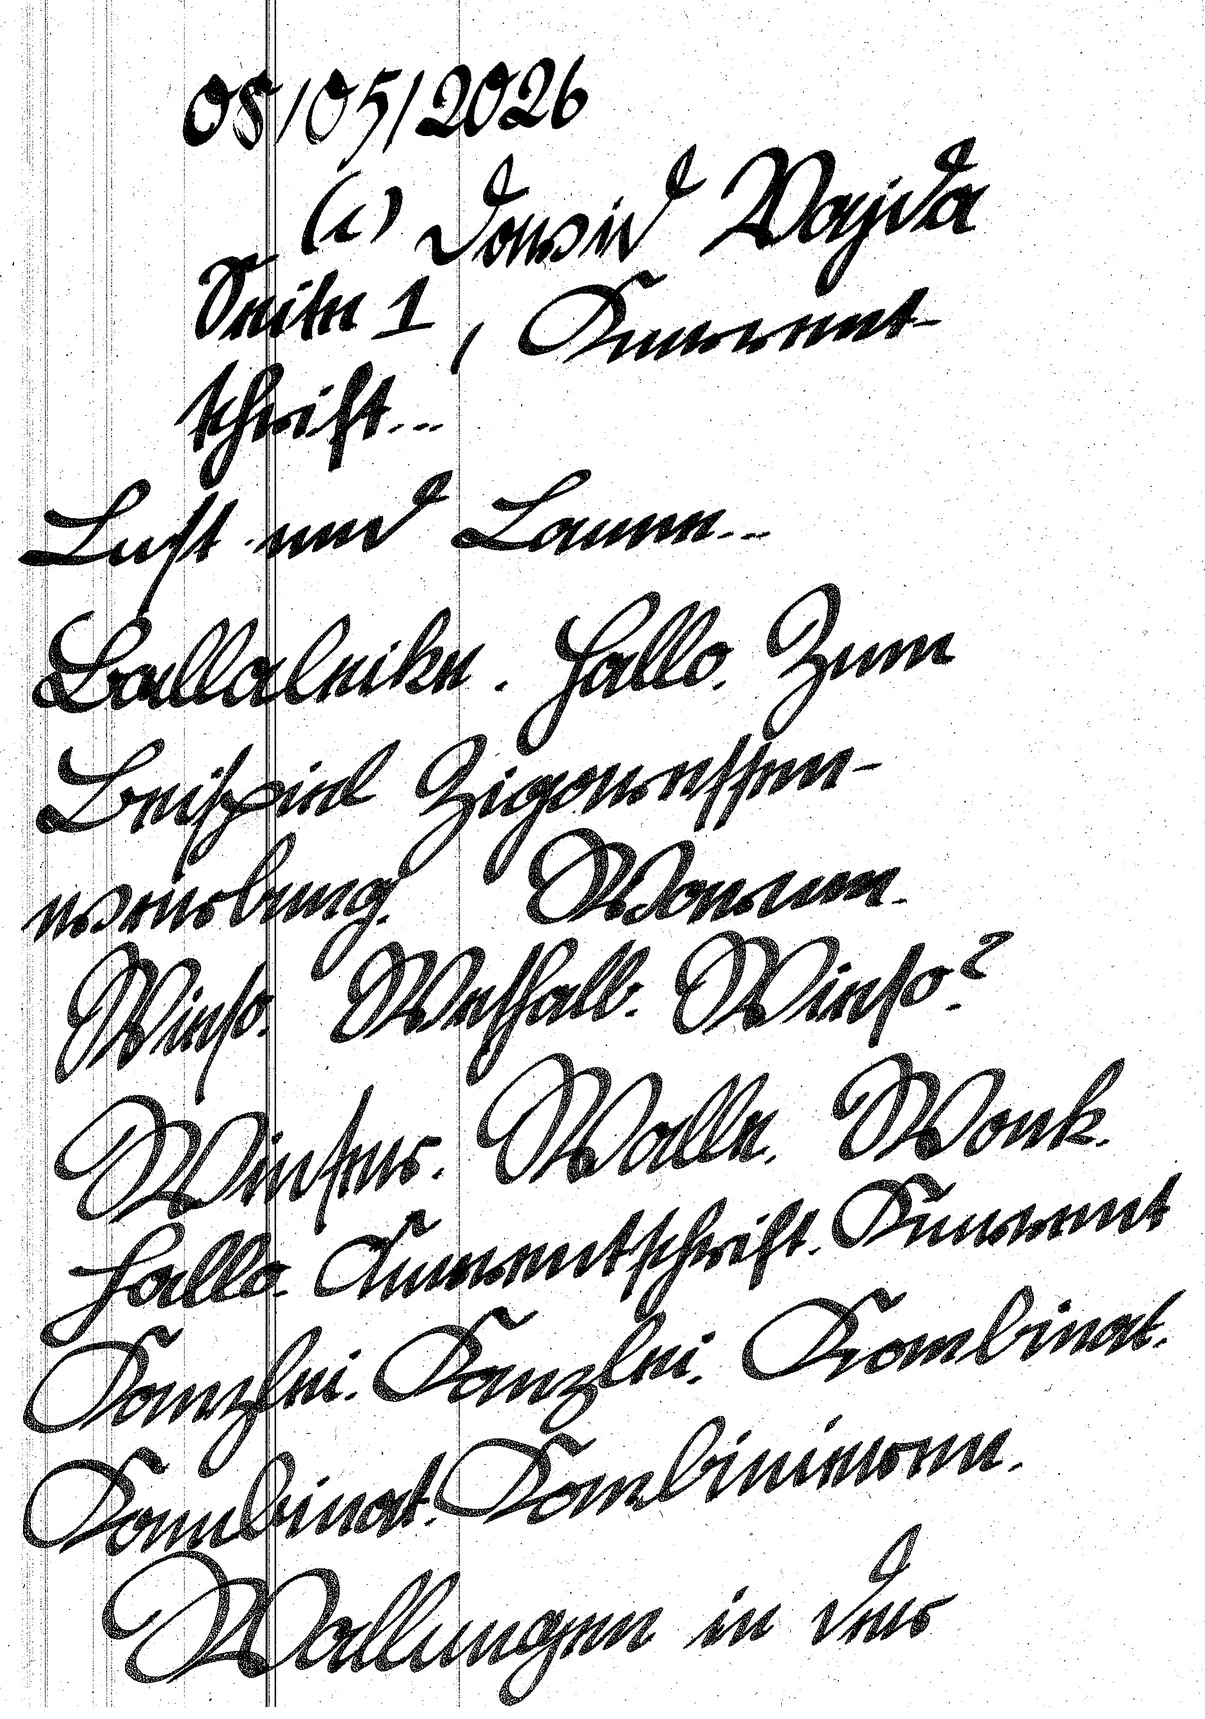 08/05/2026
(c) David Wajda
Seite 1, Kurrent-
schrift...
Luft und Laune...
Ballaleike. Hallo. Zum
Beispiel Zigaretten-
werbung. Warum.
Wieso. Weshalb. Wieso?
Winter. Walle. Wank.
Hallo. Kurrentschrift. Kurrent
Kanzlei. Kanzlei. Kombinat.
Kombinat. Kombinieren.
Wallungen in der